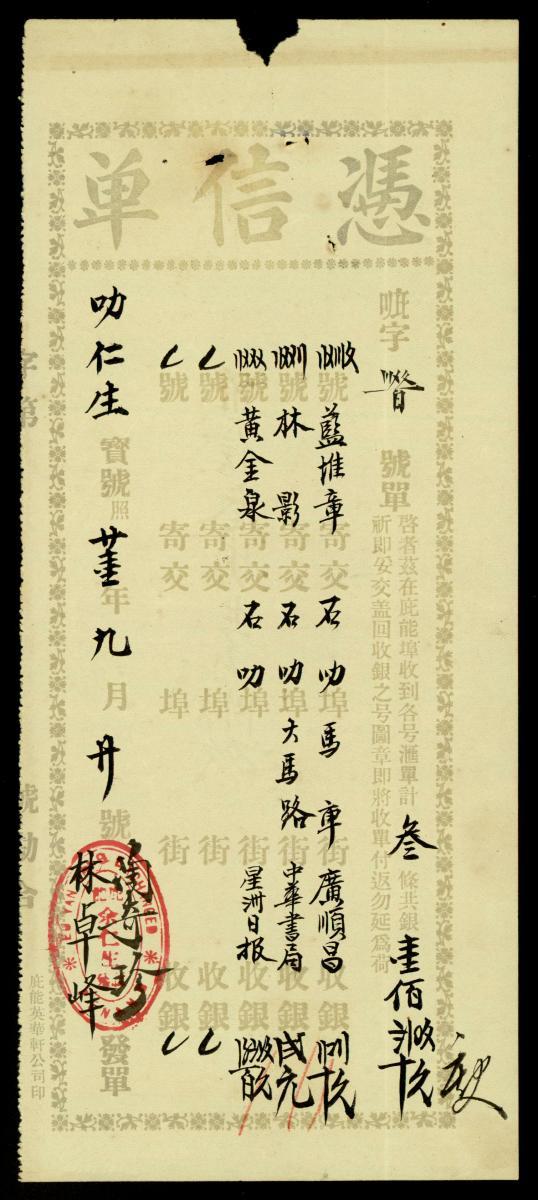 憑信单
㕵字 號單
啓者茲在庇能埠收到各号滙單計叁條共銀壹佰
祈即妥交盖回收銀之号圖章即將收單付返勿延爲荷
號藍堆章寄交石叻埠馬車街廣順昌收銀
號林影寄交石叻埠大馬路街中華書局收銀弍元
號黃金泉寄交石叻埠街星洲日报收銀
號寄交埠街收銀
號寄交埠街收銀
叻仁生寶號照年九月廾號 發單
林卓峰
EU YAN
余仁生
庇能英華軒公司印
字第 號勘合